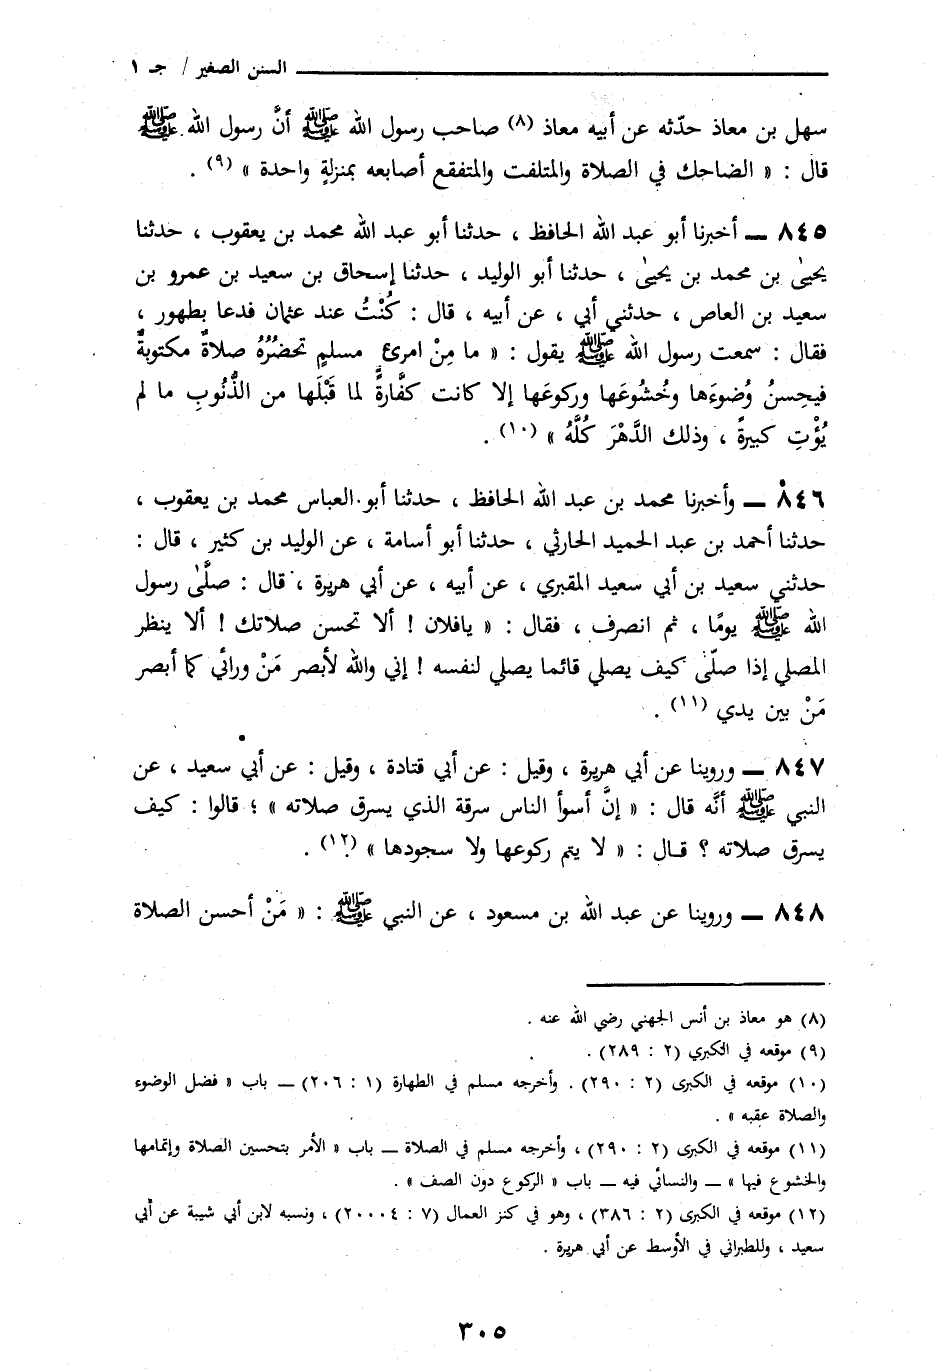 السنن الصغير / جـ ١
سهل بن معاذ حدّثه عن أبيه معاذ (٨) صاحب رسول الله ﷺ أنَّ رسول الله ﷺ
قال : « الضاحك في الصلاة والمتلفت والمتفقع أصابعه بمنزلةٍ واحدة » (٩) .
٨٤٥ ــ أخبرنا أبو عبد الله الحافظ ، حدثنا أبو عبد الله محمد بن يعقوب ، حدثنا
يحيىٰ بن محمد بن يحيىٰ ، حدثنا أبو الوليد ، حدثنا إسحاق بن سعيد بن عمرو بن
سعيد بن العاص ، حدثني أبي ، عن أبيه ، قال : كُنْتُ عند عثمان فدعا بطهور ،
فقال : سمعت رسول الله ﷺ يقول : « ما مِنْ امرئ مسلمٍ تحضُرُهُ صلاةٌ مكتوبةٌ
فيحِسنُ وُضوءَها وخُشوعَها وركوعَها إلا كانت كفَّارةً لما قَبْلَها من الذُّنوبِ ما لم
يُؤْتِ كبيرةً ، وذلك الدَّهْرَ كُلَّهُ » (١٠) .
٨٤٦ ــ وأخبرنا محمد بن عبد الله الحافظ ، حدثنا أبو العباس محمد بن يعقوب ،
حدثنا أحمد بن عبد الحميد الحارثي ، حدثنا أبو أسامة ، عن الوليد بن كثير ، قال :
حدثني سعيد بن أبي سعيد المقبري ، عن أبيه ، عن أبي هريرة ، قال : صلَّىٰ رسول
الله ﷺ يومًا ، ثم انصرف ، فقال : « يافلان ! ألا تحسن صلاتك ! ألا ينظر
المصلي إذا صلّى كيف يصلي قائما يصلي لنفسه ! إني والله لأبصر مَنْ ورائي كما أبصر
مَنْ بين يدي (١١) .
٨٤٧ ــ وروينا عن أبي هريرة ، وقيل : عن أبي قتادة ، وقيل : عن أبي سعيد ، عن
النبي ﷺ أنَّه قال : « إنَّ أسوأ الناس سرقة الذي يسرق صلاته » ؛ قالوا : كيف
يسرق صلاته ؟ قال : « لا يتم ركوعها ولا سجودها » (١٢) .
٨٤٨ ــ وروينا عن عبد الله بن مسعود ، عن النبي ﷺ : « مَنْ أحسن الصلاة
(٨) هو معاذ بن أنس الجهني رضي الله عنه .
(٩) موقعه في الكبري (٢ : ٢٨٩) .
(١٠) موقعه في الكبرى (٢ : ٢٩٠) . وأخرجه مسلم في الطهارة (١ : ٢٠٦) ــ باب « فضل الوضوء
والصلاة عقبه » .
(١١) موقعه في الكبرى (٢ : ٢٩٠) ، وأخرجه مسلم في الصلاة ــ باب « الأمر بتحسين الصلاة وإتمامها
والخشوع فيها » ــ والنسائي فيه ــ باب « الركوع دون الصف » .
(١٢) موقعه في الكبرى (٢ : ٣٨٦) ، وهو في كنز العمال (٧ : ٢٠٠٠٤) ، ونسبه لابن أبي شيبة عن أبي
سعيد ، وللطبراني في الأوسط عن أبي هريرة .
٣٠٥